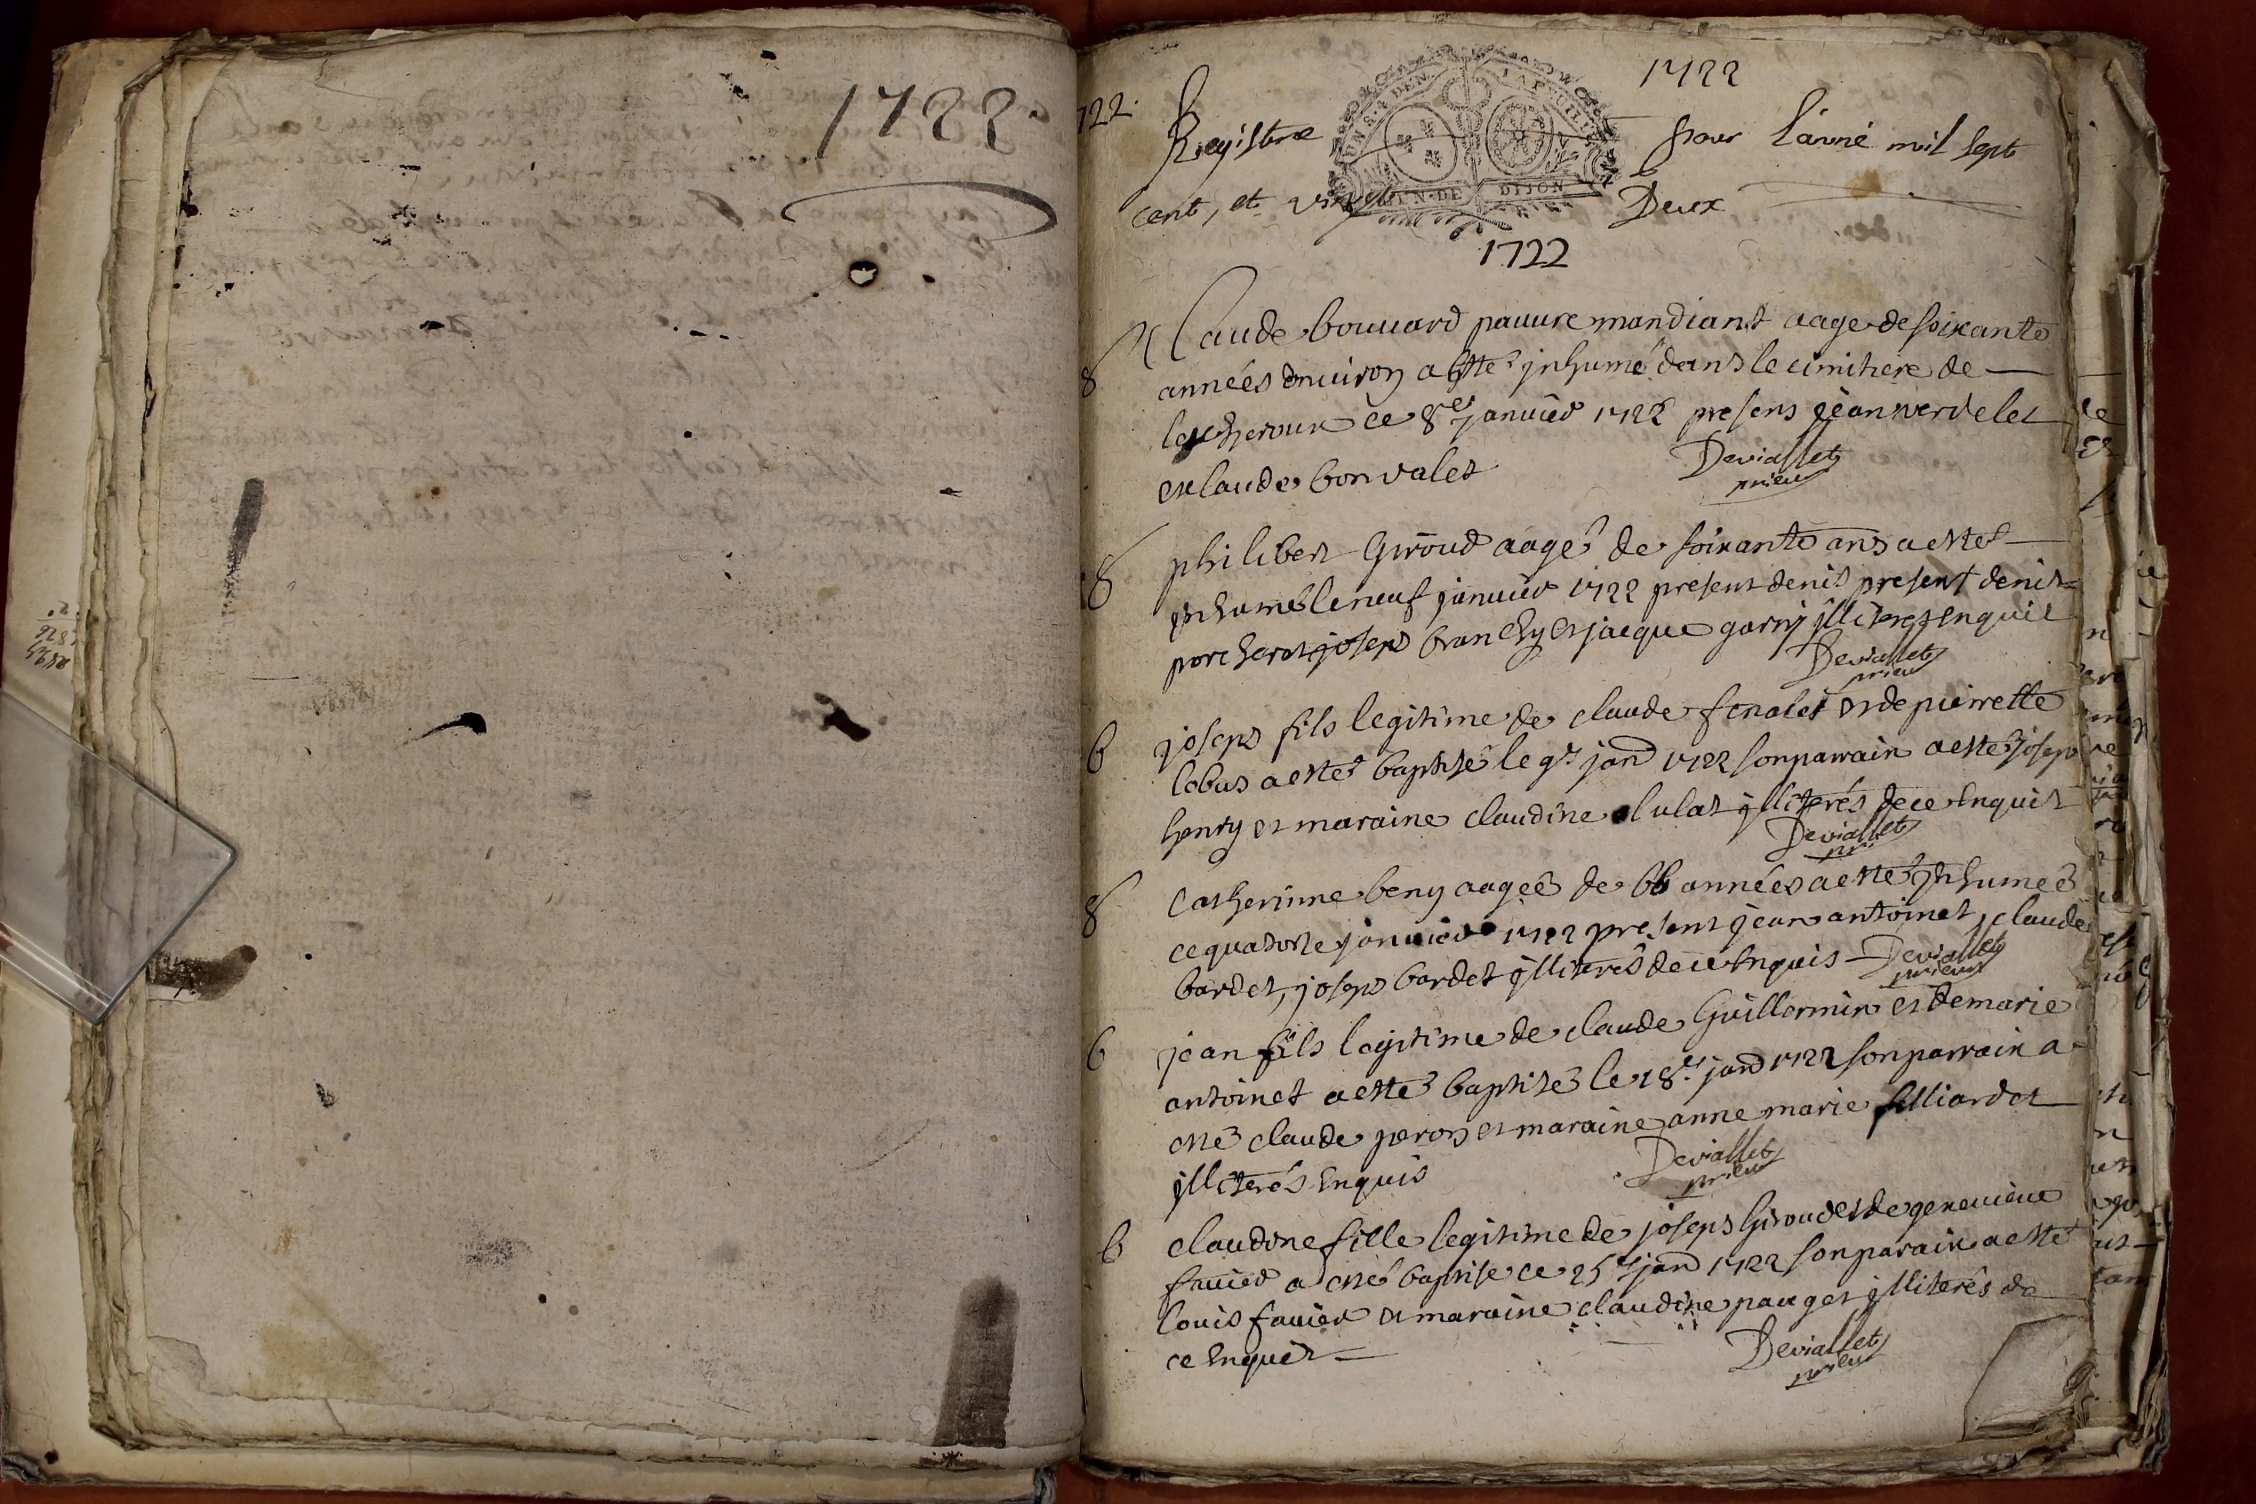 1722.
1722
722.
Registre pour l'anné mil sept
cent, et vingt Deux
GEN. DE DIJON
1722
Claude bouvard pauure mandiant aage de soixante
années enuiron a esté jnhumé dans le cimitiere de
ce 8e januier 1722 presens jean verdelet
et claude bonvalet
Deviallet
prieur
8
philibert Giroud aagé de soixante ans a esté
jnhumé le neuf januier 1722 present denis present denis
porcherot joseph branchy et jacque garny jlliterés enquit
Deviallet
prieur
8
joseph fils legitime de claude fenolet et de pierrette
lobus a esté baptisé le 9e janr 1722 son parrain a esté joseph
henry et maraine claudine lulat jlliterés de ce enquit
Deviallet
b
Catherinne beny aageé de 66 années a esté jnhumeé
ce quatorze januier 1722 present jean antoinet, claude
bardet, joseph bardet jlliterés de ce enquis Deviallet
prieur
8
jean fils legitime de claude Guillermin et de marie
antoinet a esté baptisé le 18e janr 1722 son parrain a
esté claude peron et maraine anne marie filliardet
jlliterés enquis
Deviallet
prieur
b
claudine fille legitime de joseph Giroud et de geneuieue
fauier a esté baptise ce 25e janr 1722 son parain a esté
louis fauier et maraine claudine pauget jlliterés de
ce enquit
Deviallet
prieur
b